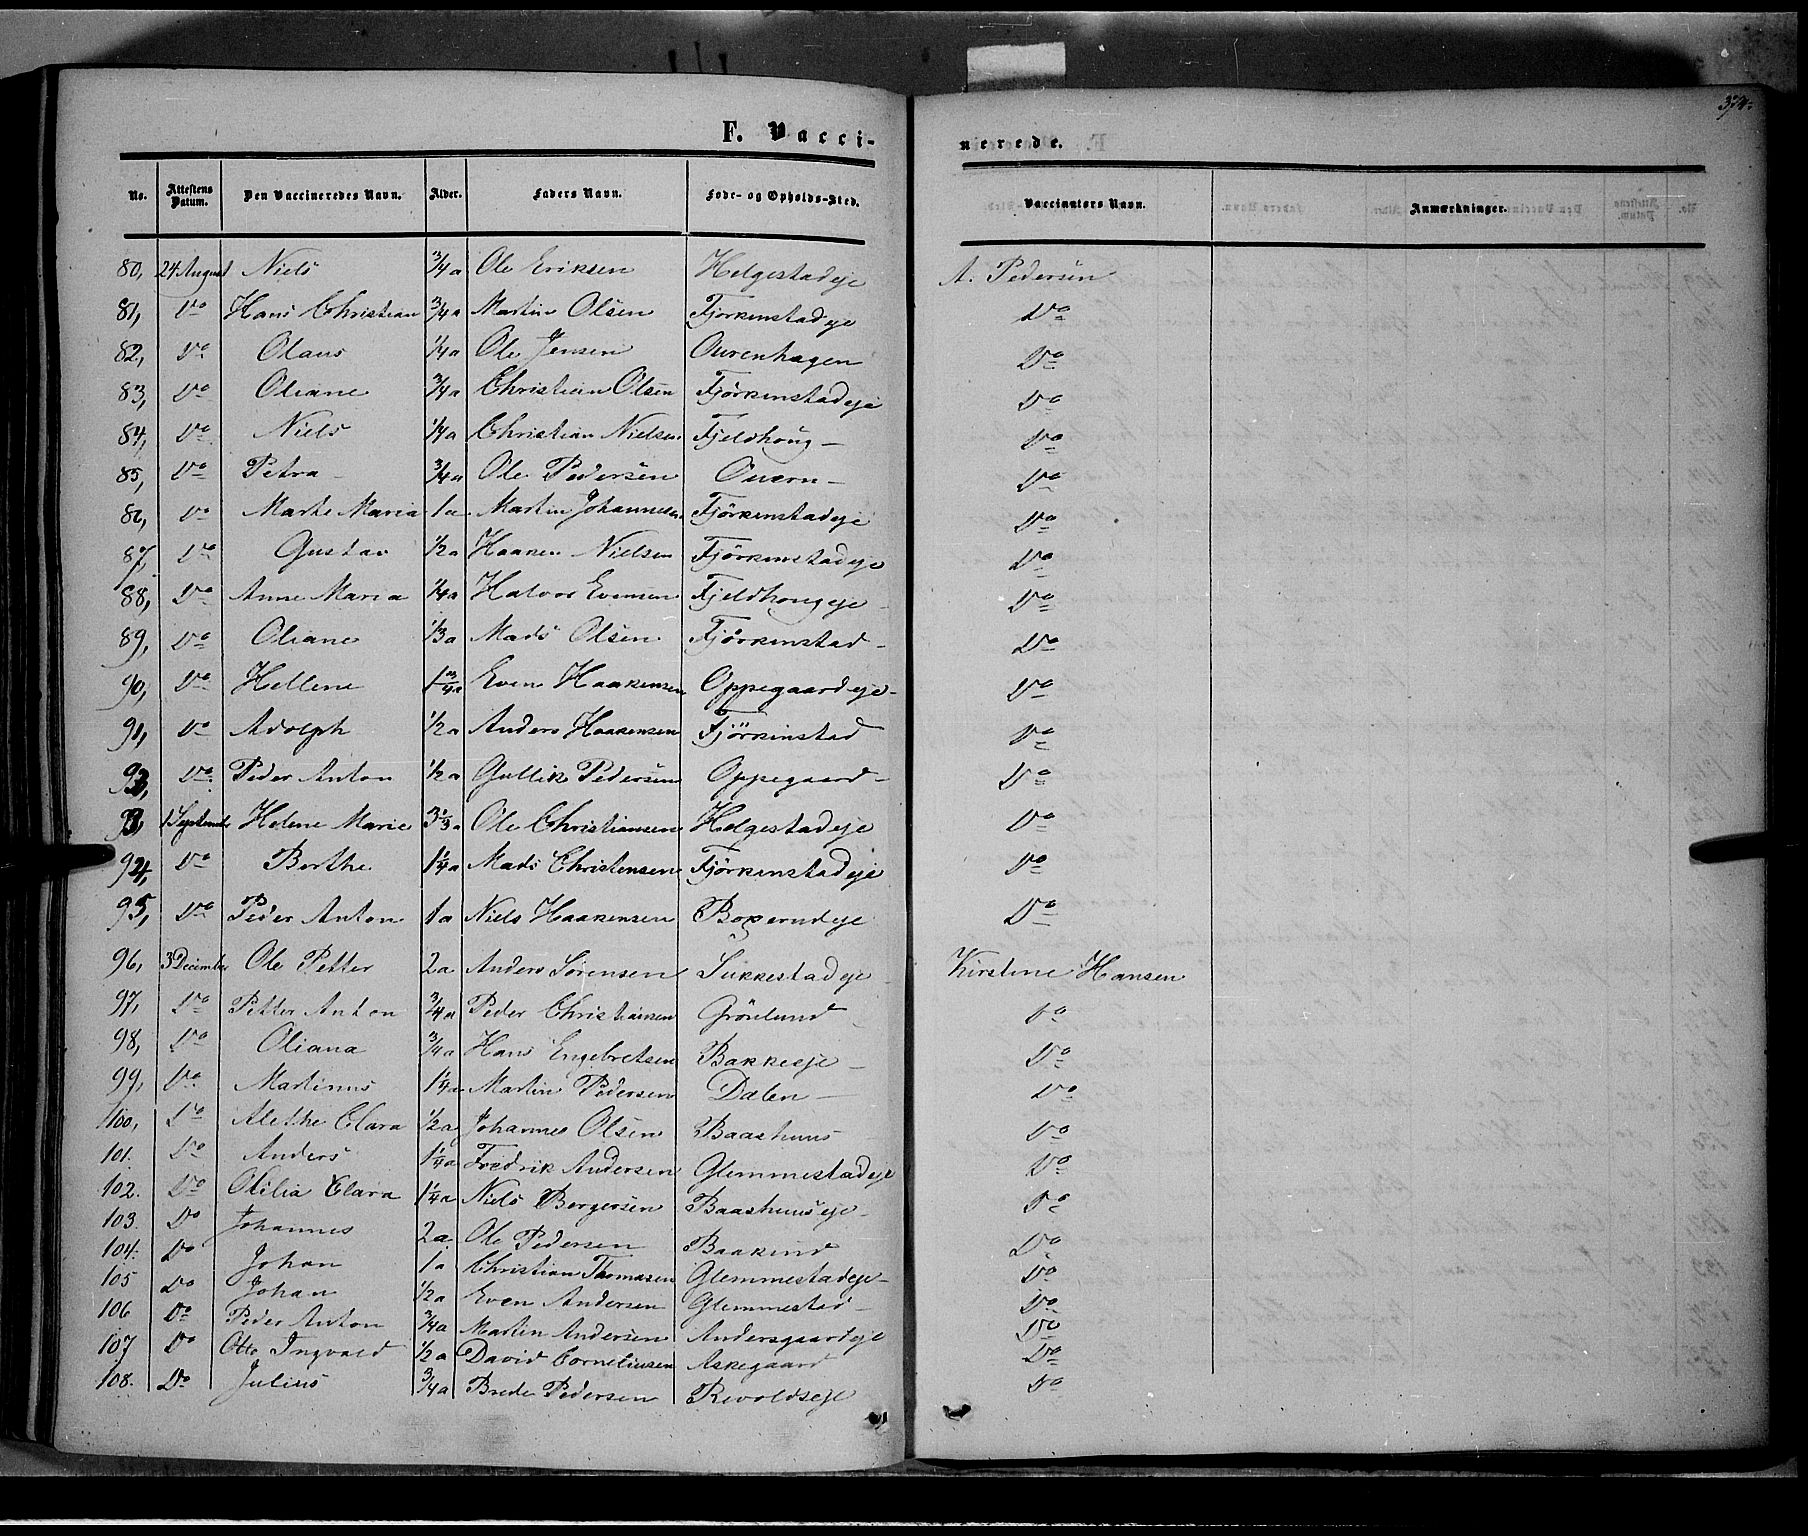 374.
F. Vaccinerede.
No. Attestens Datum. Den Vaccineredes Navn. Alder. Faders Navn. Føde- og Opholds-Sted. Vaccinators Navn. Anmærkninger.
80, 24 August Niels 3/4 a Ole Eriksen Helgestadeje A. Pedersen
81, Do Hans Christian 3/4 a Martin Olsen Fjørkenstadeje Do
82, Do Olaus 1/4 a Ole Jensen Ourenhagen Do
83, Do Oliane 3/4 a Christian Olsen Fjörkenstadeje Do
84, Do Niels 1/4 a Christian Nielsen Fjeldhoug Do
85, Do Petra 3/4 a Ole Pedersen Ouern Do
86, Do Marthe Maria 1 a Martin Johannesen Fjörkenstadeje Do
87, Do Gustav 1/2 a Haaken Nielsen Fjörkenstadeje Do
88, Do Anne Maria 1/4 a Halvor Evensen Fjeldhougeje Do
89, Do Oliane 1/3 a Mads Olsen Fjörkenstad Do
90, Do Hellene 1 3/4 a Even Haakensen Oppegaardeje Do
91, Do Adolph 1/2 a Anders Haakensen Fjörkinstad Do
92, Do Peder Anton 1/2 a Gullik Pedersen Oppegaard Do
93, 1 September Helene Marie 3 1/3 a Ole Christiansen Helgestadeje Do
94, Do Berthe 1 1/4 a Mads Christensen Fjörkenstadeje Do
95, Do Peder Anton 1 a Niels Haakensen Boxerudeje Do
96, 3 December Ole Petter 2 a Anders Sörensen Sukkestadeje Kirstine Hansen
97, Do Petter Anton 3/4 a Peder Christiansen Grönlund Do
98, Do Oliana 3/4 a Hans Engebretsen Bakkeeje Do
99, Do Martinus 1 1/4 a Martin Pedersen Dalen Do
100, Do Alethe Clara 1/2 a Johannes Olsen Baashuus Do
101. Do Anders 1 1/4 a Fredrik Andersen Glemmestadeje Do
102. Do Otilia Clara 1 1/4 a Niels Bergersen Baashuuseje Do
103. Do Johannes 2 a Ole Pedersen Baakind Do
104. Do Johan 1 a Christian Thomasen Glemmestadeje Do
105 Do Johan 1/2 a Even Andersen Glemmestad Do
106 Do Peder Anton 3/4 a Martin Andersen Andersgaardeje Do
107 Do Otto Ingvald 1/2 a David Corneliusen Askegaard Do
108. Do Julius 3/4 a Brede Pedersen Revoldseje Do